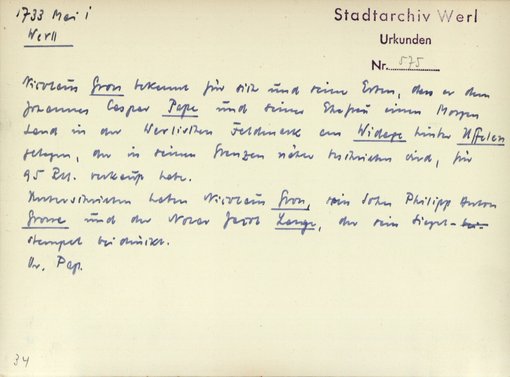 1733 Mai 1
Werll
Stadtarchiv Werl
Urkunden
Nr. 575
Nicolaus Gron bekennt für sich und seine Erben, dass er dem
Johannes Caspar Pape und seiner Ehefrau einen Morgen
Land in der Werlischen Feldmark am Widage hinter Uffelen
gelegen, der in seinen Grenzen näher beschrieben wird, für
95 Rt. verkauft habe.
Unterschrieben haben Nicolaus Gron, sein Sohn Philipp Anton
Grone und der Notar Jacob Lange, der sein Siegel-
stempel beidrückt.
Or. Pap.
34